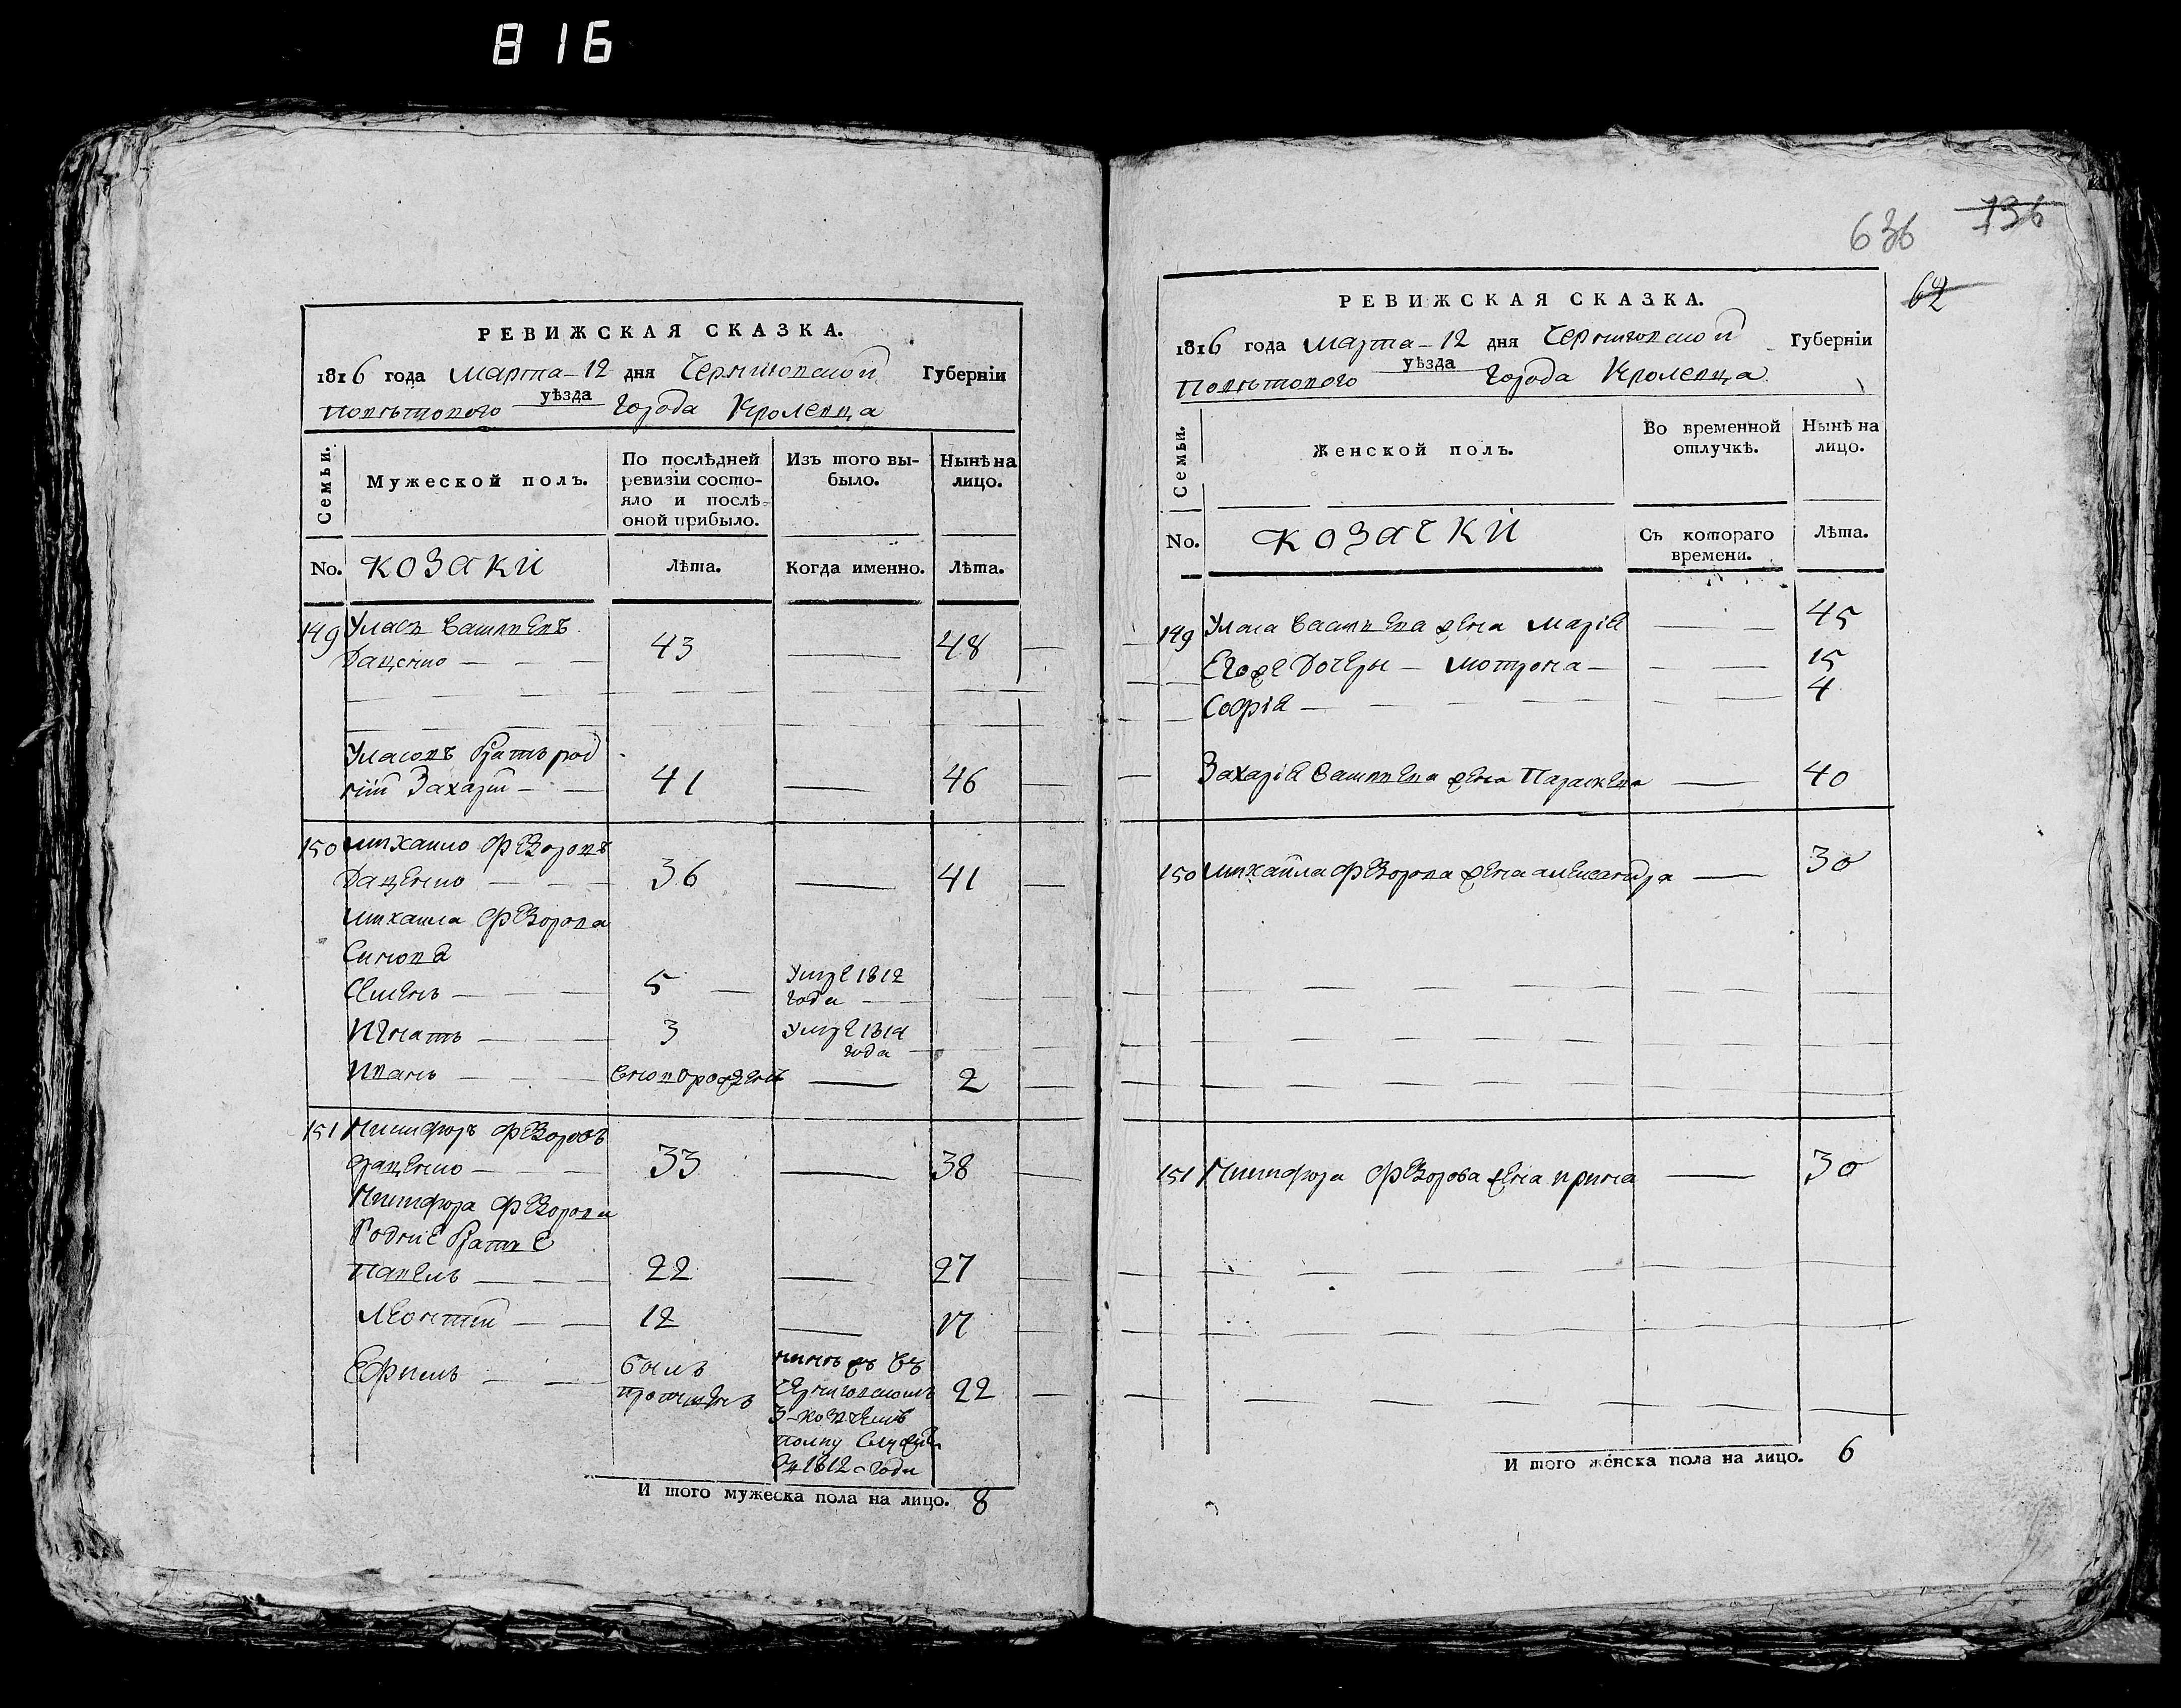 816
РЕВИЖСКАЯ СКАЗКА.
1816 года Марта - 12 дня Черниговской Губернїи
Поветового уѣзда Города Кролевца
Семьи.
Мужеской полъ.
По послѣдней ревизїи состо-
яло и послѣ
оной прибыло.
Изъ того вы-
было.
Нынѣ на
лицо.
No.
козаки
Лѣта.
Когда именно.
Лѣта.
149 Уласъ Евстафіевъ
Даценко 43 48
Уласовъ братъ род
ній Захарій 41 46
150 Михайло Федоровъ
Даценко 36 41
Михаила Федорова
Синовя
Семенъ 5 умре 1812
года
Игнатъ 3 умре 1814
года
Иванъ вновророжденъ 2
151 Никифоръ Федоровъ
Даценко 33 38
Никифора Федорова
Родніе братя
Павелъ 22 27
Леонтій 12 17
Ефимъ былъ
пропущенъ
нынѣ въ
Черниговскомъ 22
3-козачемъ
полку
1812 года
И того мужеска пола на лицо. 8
636 136
62
РЕВИЖСКАЯ СКАЗКА.
1816 года Марта - 12 дня Черниговской Губернїи
Поветового уѣзда Города Кролевца
Семьи.
Женской полъ.
Во временной
отлучкѣ.
Нынѣ на
лицо.
No.
козачки
Съ котораго
времени.
Лѣта.
149 Уласа жена Марія 45
Егоже дочеры Мотрона 15
Софія 4
Захарія жена Параскева 40
150 Михайла Федорова жена Александра 30
151 Никифора Федорова жена Ирина 30
И того женска пола на лицо. 6